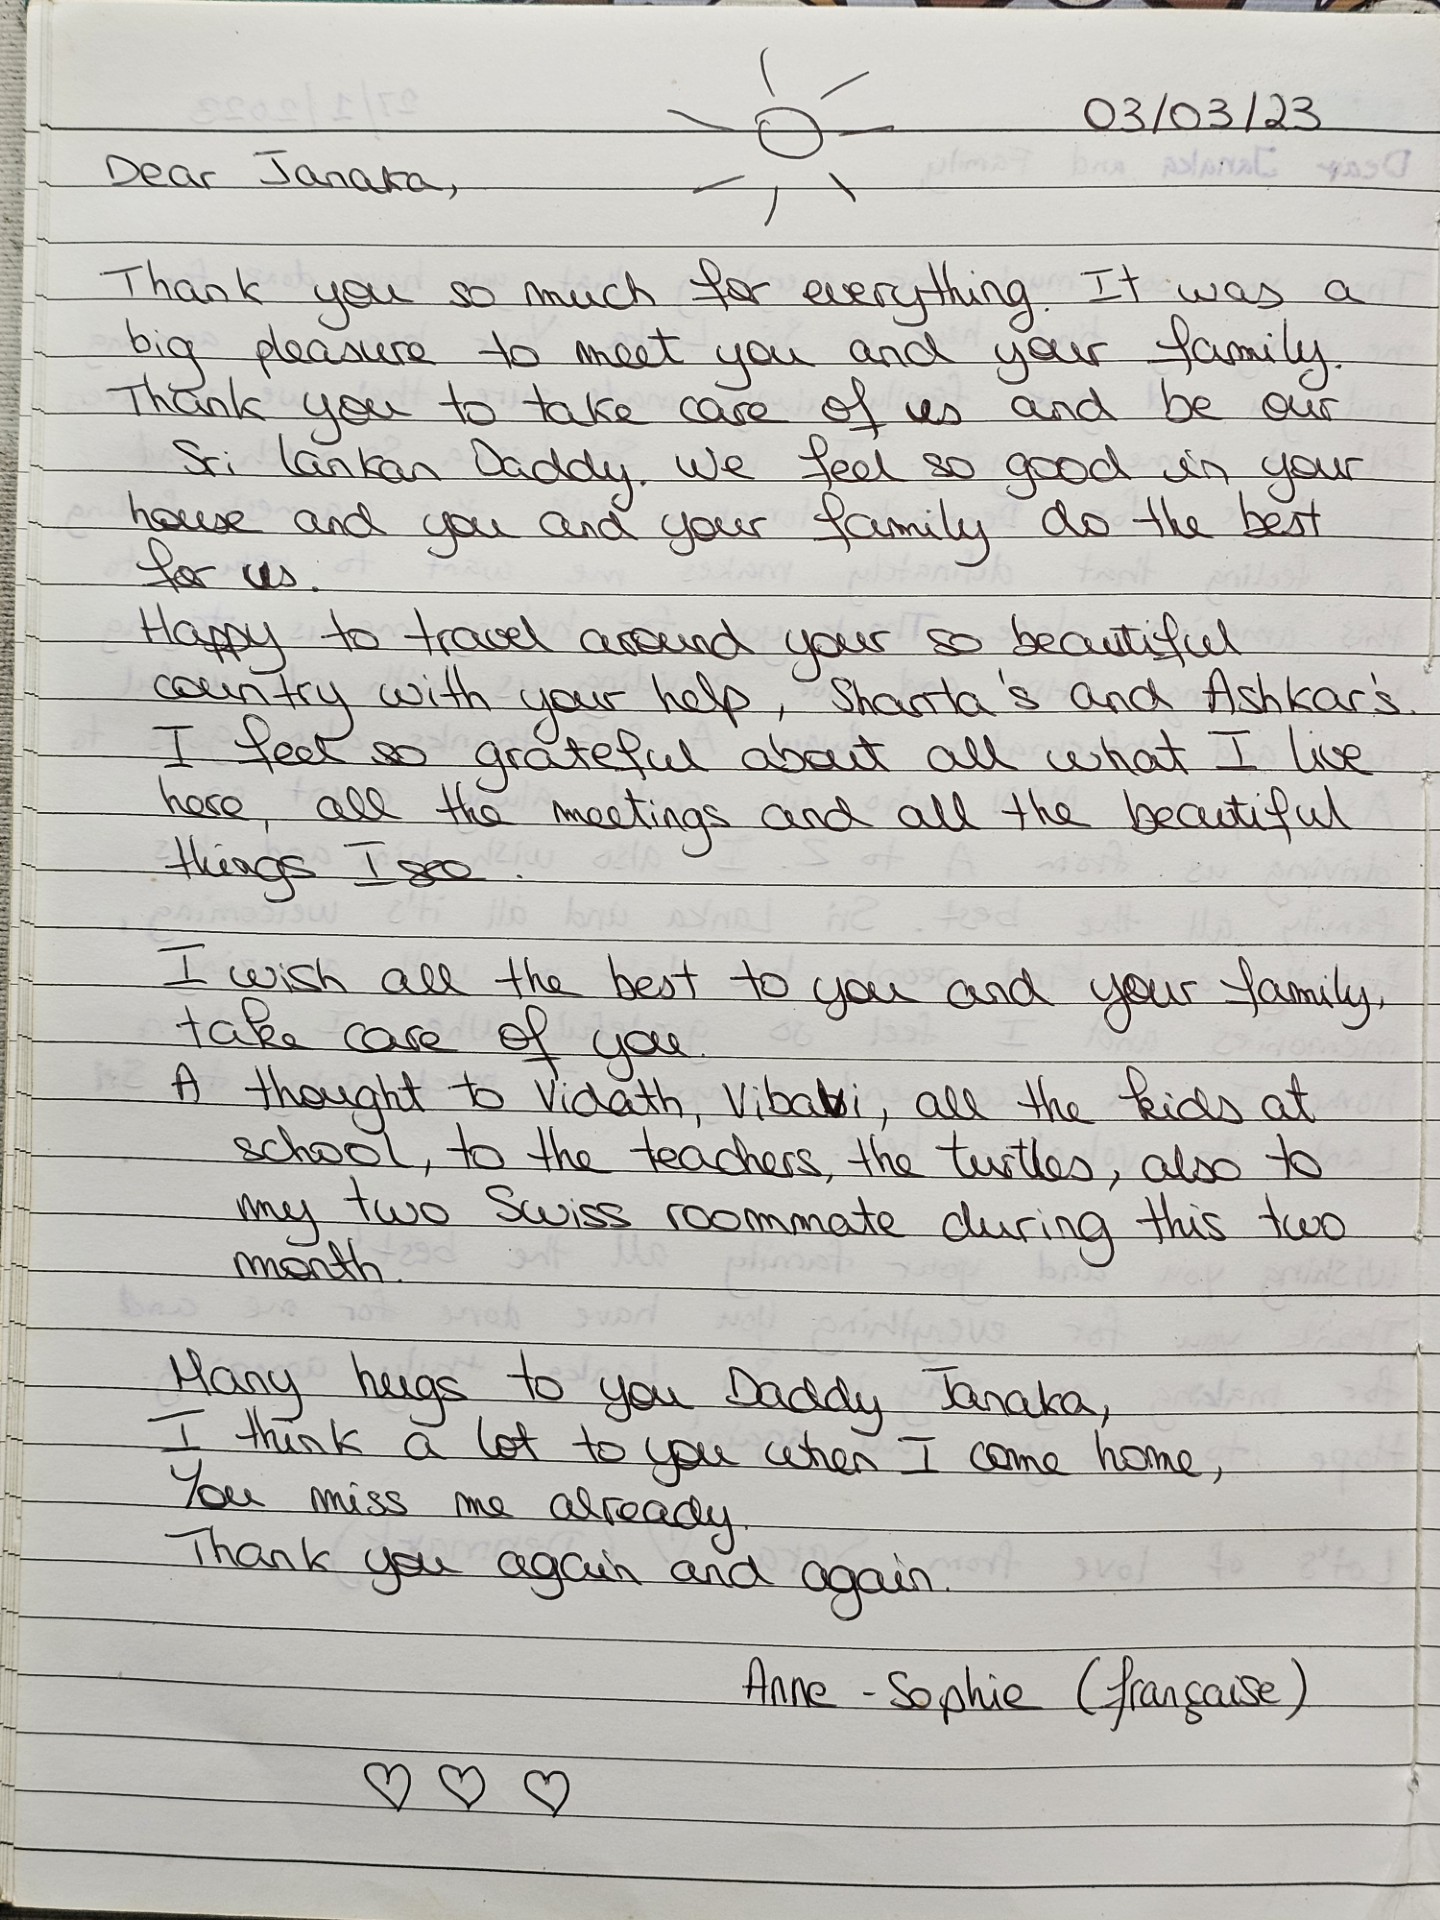 03/03/23
Dear Janaka,
Thank you so much for everything. It was a
big pleasure to meet you and your family.
Thank you to take care of us and be our
Sri Lankan Daddy. We feel so good in your
house and you and your family do the best
for us.
Happy to travel around your so beautiful
country with your help, Shanta's and Ashkar's.
I feel so grateful about all what I live
here, all the meetings and all the beautiful
things I see.
I wish all the best to you and your family,
take care of you.
A thought to Vidath, Vibavi, all the kids at
school, to the teachers, the turtles, also to
my two Swiss roommate during this two
month.
Many hugs to you Daddy Janaka,
I think a lot to you when I come home,
You miss me already.
Thank you again and again.
Anne-Sophie (française)